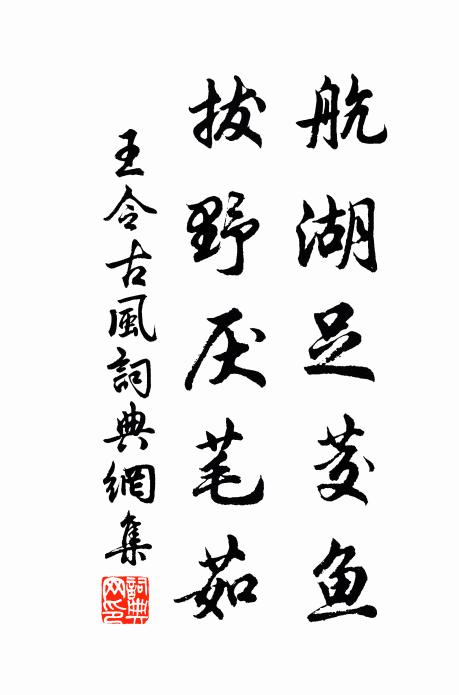 航湖足芰鱼
拔野厌芼茹
王令古風詞典網集
詞典
网印